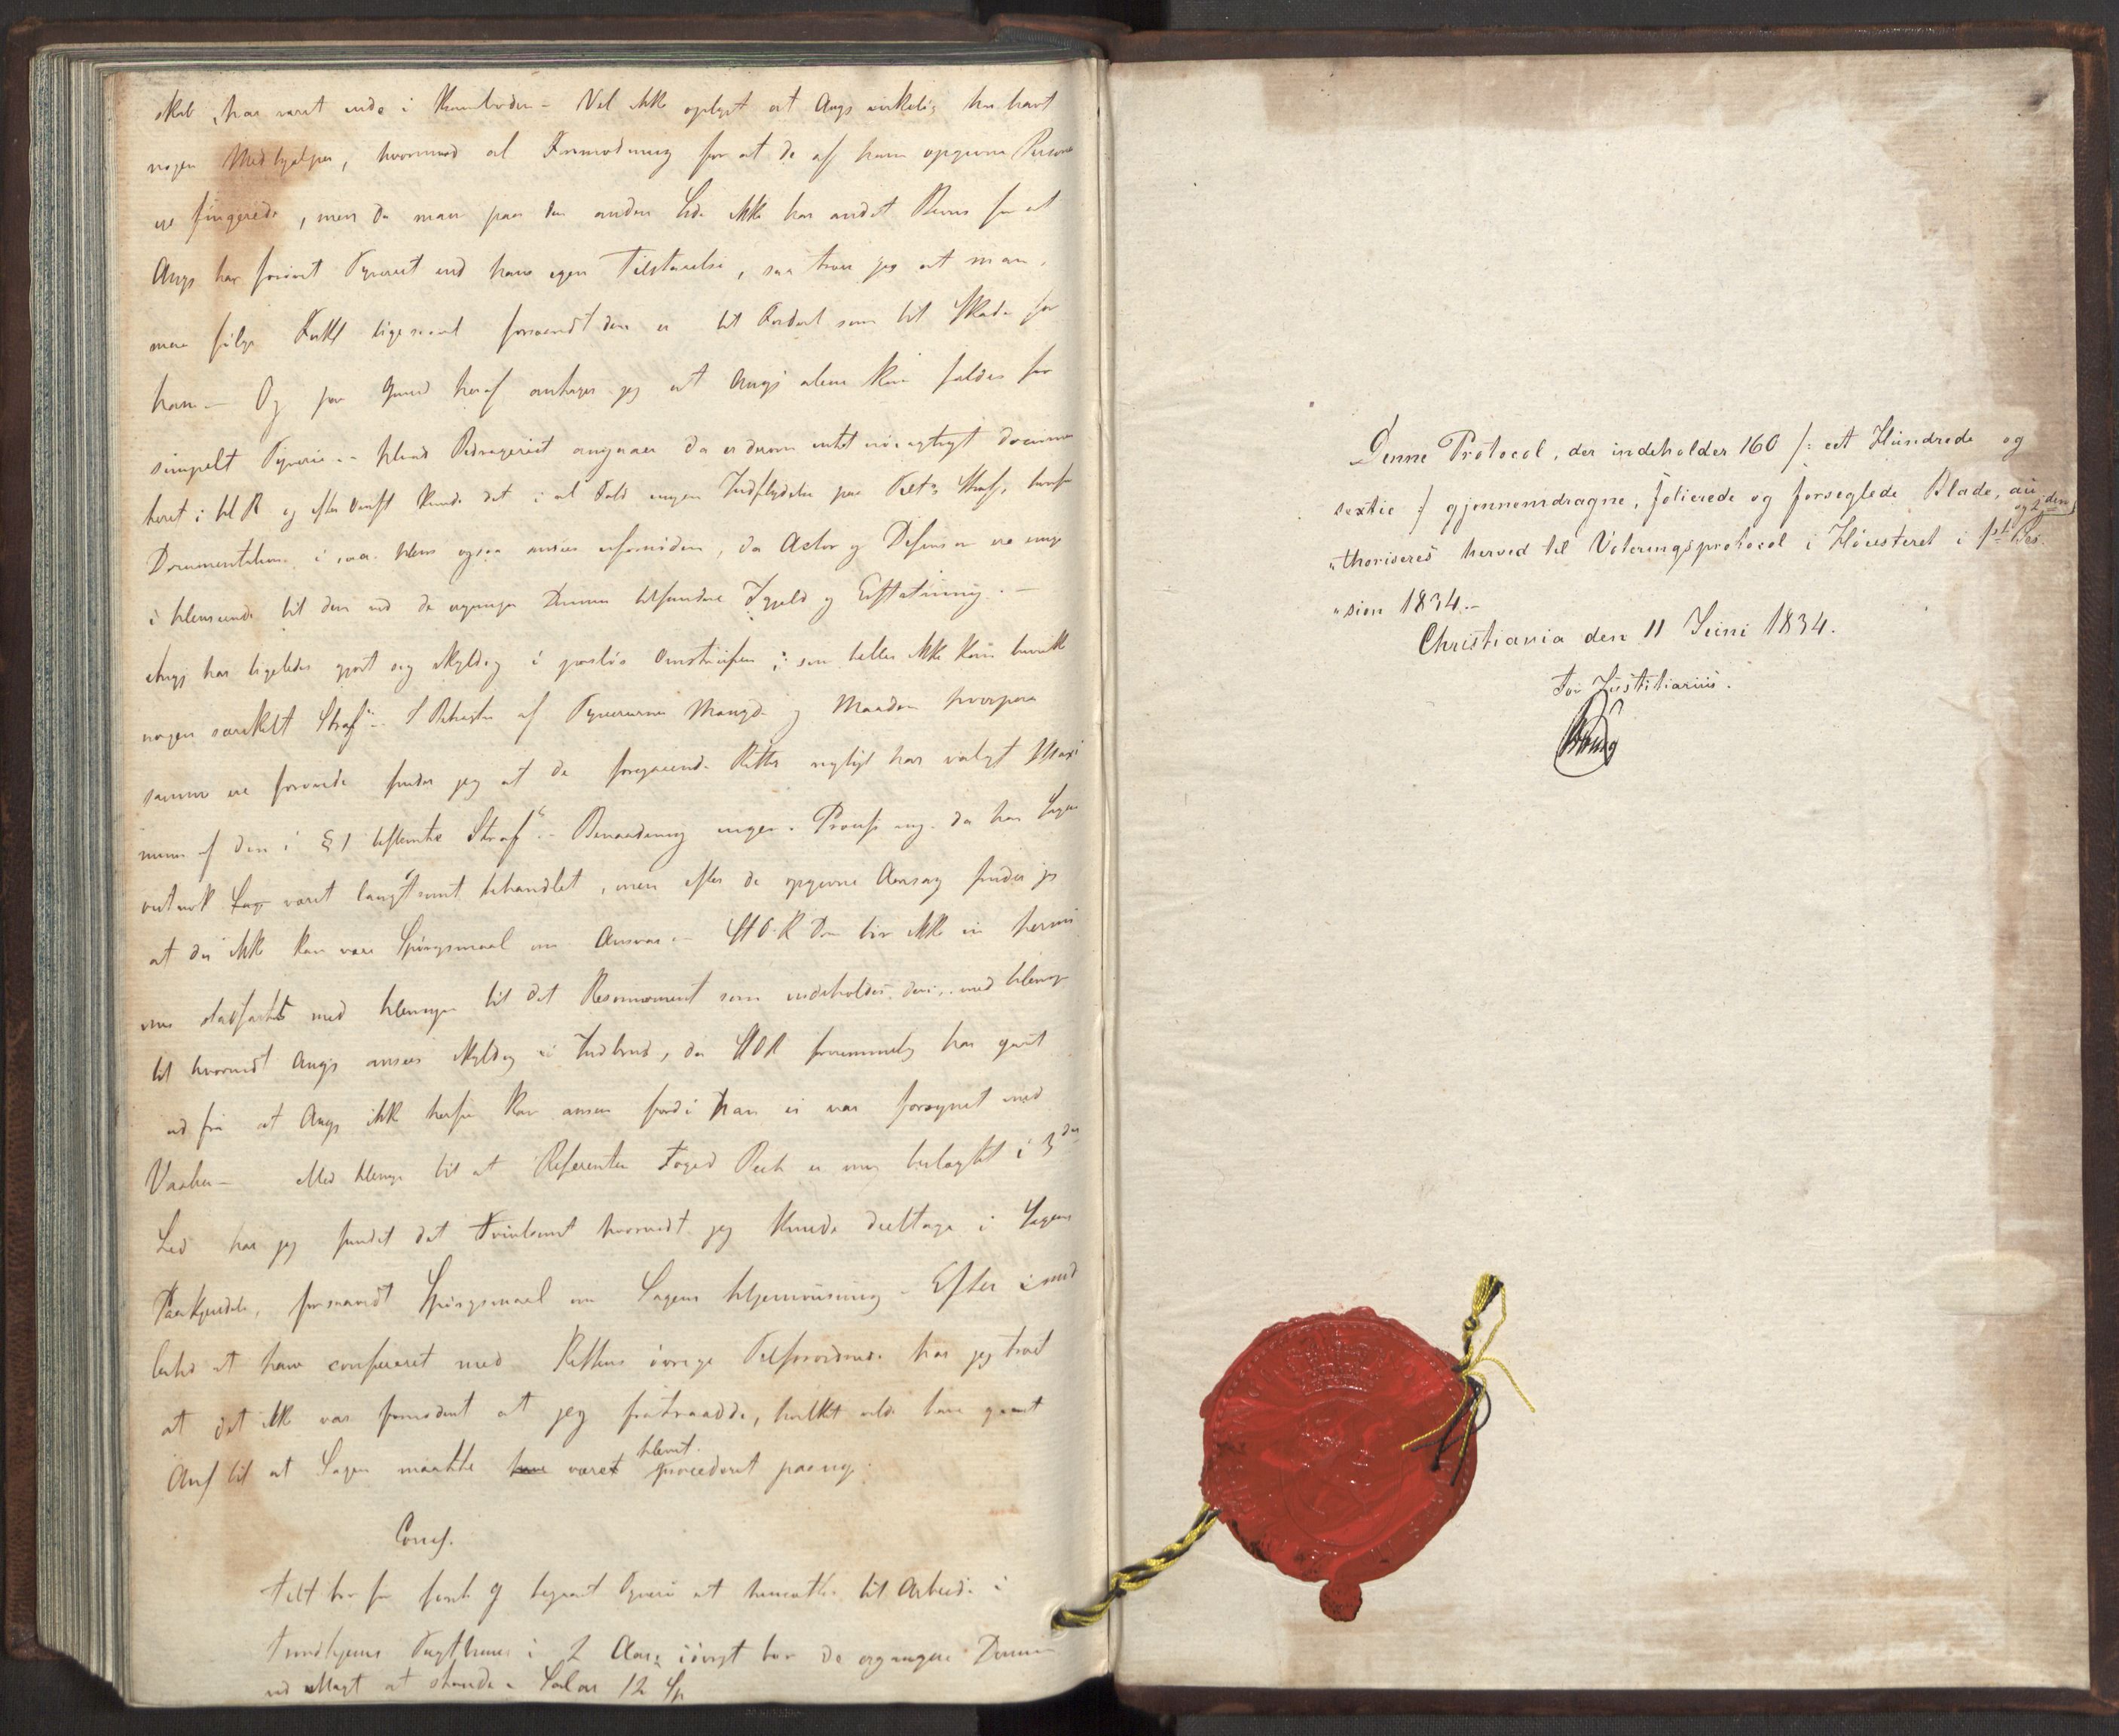 skab, har været inde i Kramboden - Vel ikke oplyst at Angs virkelig har havt
nogen Medhjelper, hvorimod al Formodning for at de af ham opgivne Persone
ere fingerede, men da man paa den anden Side ikke har andet Beviis for at
Angs har forövet Tyveriet end hans egen Tilstaaelse, saa troer jeg at man
maa fölge Factt ligesaavel forsaavidt den er til Fordeel som til Skade for
ham - Og paa Grund heraf antager jeg at Angs alene kan fældes for
simpelt Tyverie - Hvad Bedrageriet angaaer da er derom intet nöiagtigt documen
teret i HR og efter kunde det i al Fald ingen Indflydelse paa Tilt's Straf,
Documentation i saa Hens ogsaa ansees ufornöden, da Actor og Defensor ere enige
i Henseende til den ved de ergangne Domme tilfundne Igjeld og Erstatning. -
Angs har ligeledes gjort sig skyldig i pasløs Omstreifen, som heller ikke kan bevirke
nogen særskilt Straf - I Betragtn af Tyveriernes Mængde og Maaden hvorpaa
samme ere forövede finder jeg at de foregaaende Retter rigtigt har valgt Maxi
mum af den i § 1 bestemte Straf - Benaadning ingen. Proces ang. da har Sagen
vistnok Sag været langsomt behandlet, men efter de opgivne Aarsag finder jeg
at der ikke kan være Spörgsmaal om Ansvar - StOR Dom bör ikke in
med Hensyn til det Resonnement som indeholdes deri, med Hensyn
til hvorvidt Angs ansees skyldig i Indbrud, da StOR har gaaet
ud fra at Angs ikke herfor kan ansees fordi han ei var forsynet med
Vaaben - Med Hensyn til at Referenten Foged Rech er mig beslægtet i 3die
Led har jeg fundet det tvivlsomt hvorvidt jeg kunde deeltage i Sagens
Paakjendelse, forsaavidt Spörgsmaal om Sagens Hjemviisning - Efter imid
lertid at have confereret med Rettens övrige Tilforordnede har jeg troet
at det ikke var fornödent at jeg fratraadde, hvilket vilde have gjort
Anl til at Sagen maatte have været blevet procederet paany.
Conf.
Tilt bör for første og begaaet Tyverie at hensættes til Arbeide i
Trondhjems Tugthuus i 2 Aar; iövrigt bör de ergangne Domme
ved Magt at stande. Salar 12 Sp
Denne Protocol, der indeholder 160 /: eet Hundrede og
sextie :/ gjennemdragne, folierede og forseglede Blade, au
"thoriseres herved til Voteringsprotocol i Höiesteret i 1ste og 2den Ses-
"sion 1834.-
Christiania den 11 Juni 1834.
For Justitiarius.